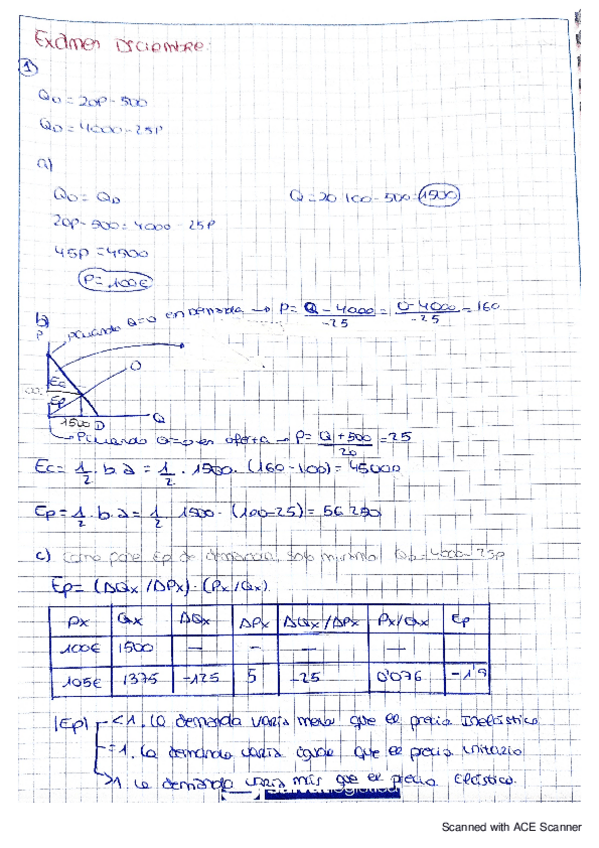 Examen Diciembre:
1
Qo = 20P - 500
QD = 4000 - 25P
a)
Qo = QD
Q = 20·100 - 500 = 1500
20P - 500 = 4000 - 25P
45P = 4500
P = 100€
b)
P cuando Q=0 en demanda → P = Q - 4000 / -25 = 0 - 4000 / -25 = 160
P
O
Ec
Ep
1500 D
Q
P cuando Q=0 en oferta → P = Q + 500 / 20 = 25
Ec = 1/2 · b · a = 1/2 · 1500 · (160 - 100) = 45000
Ep = 1/2 · b · a = 1/2 1500 · (100 - 25) = 56 250
c) Como pone Ep de demanda, solo QD = 4000 - 25P
Ep = (ΔQx / ΔPx) · (Px / Qx)
Px Qx ΔQx ΔPx ΔQx/ΔPx Px/Qx Ep
100€ 1500 — — — —
105€ 1375 -125 5 -25 0'076 -1'9
|Ep| < 1. La demanda varía menos que el precio Inelástico
= 1. La demanda varía igual que el precio unitario
> 1 la demanda varía más que el precio Elástico.
Scanned with ACE Scanner